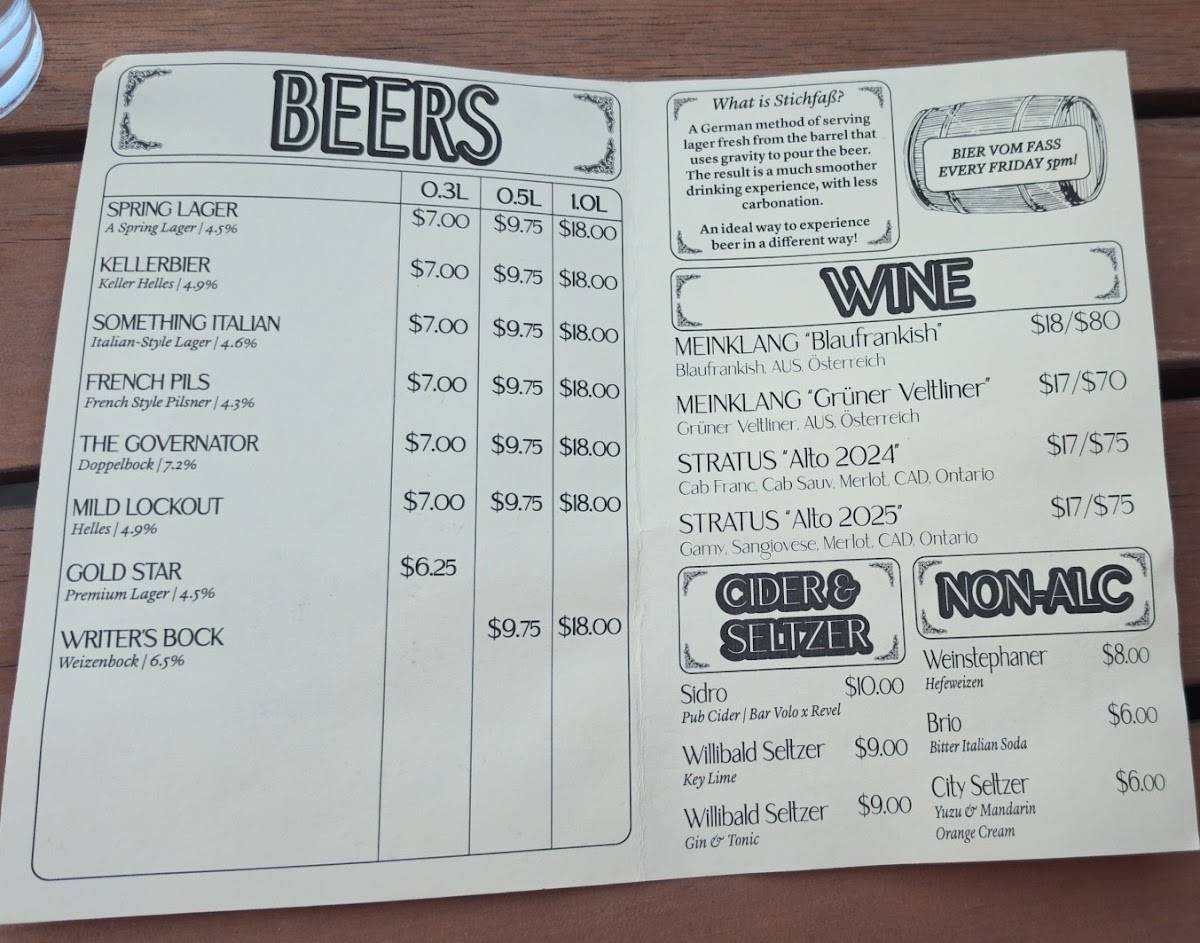 BEERS
0.3L 0.5L 1.0L
SPRING LAGER $7.00 $9.75 $18.00
A Spring Lager | 4.5%
KELLERBIER $7.00 $9.75 $18.00
Keller Helles | 4.9%
SOMETHING ITALIAN $7.00 $9.75 $18.00
Italian-Style Lager | 4.6%
FRENCH PILS $7.00 $9.75 $18.00
French Style Pilsner | 4.3%
THE GOVERNATOR $7.00 $9.75 $18.00
Doppelbock | 7.2%
MILD LOCKOUT $7.00 $9.75 $18.00
Helles | 4.9%
GOLD STAR $6.25
Premium Lager | 4.5%
WRITER'S BOCK $9.75 $18.00
Weizenbock | 6.5%
What is Stichfaß?
A German method of serving
lager fresh from the barrel that
uses gravity to pour the beer.
The result is a much smoother
drinking experience, with less
carbonation.
An ideal way to experience
beer in a different way!
BIER VOM FASS
EVERY FRIDAY 5pm!
WINE
MEINKLANG "Blaufrankish" $18/$80
Blaufrankish, AUS, Österreich
MEINKLANG "Grüner Veltliner" $17/$70
Grüner Veltliner, AUS, Österreich
STRATUS "Alto 2024" $17/$75
Cab Franc, Cab Sauv, Merlot, CAD, Ontario
STRATUS "Alto 2025" $17/$75
Gamy, Sangiovese, Merlot, CAD, Ontario
CIDER &
SELTZER
Sidro $10.00
Pub Cider | Bar Volo x Revel
Willibald Seltzer $9.00
Key Lime
Willibald Seltzer $9.00
Gin & Tonic
NON-ALC
Weinstephaner $8.00
Hefeweizen
Brio $6.00
Bitter Italian Soda
City Seltzer $6.00
Yuzu & Mandarin
Orange Cream